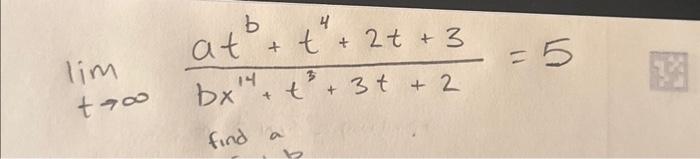 lim t→∞ (at^b + t^4 + 2t + 3) / (bx^14 + t^3 + 3t + 2) = 5
find a
b